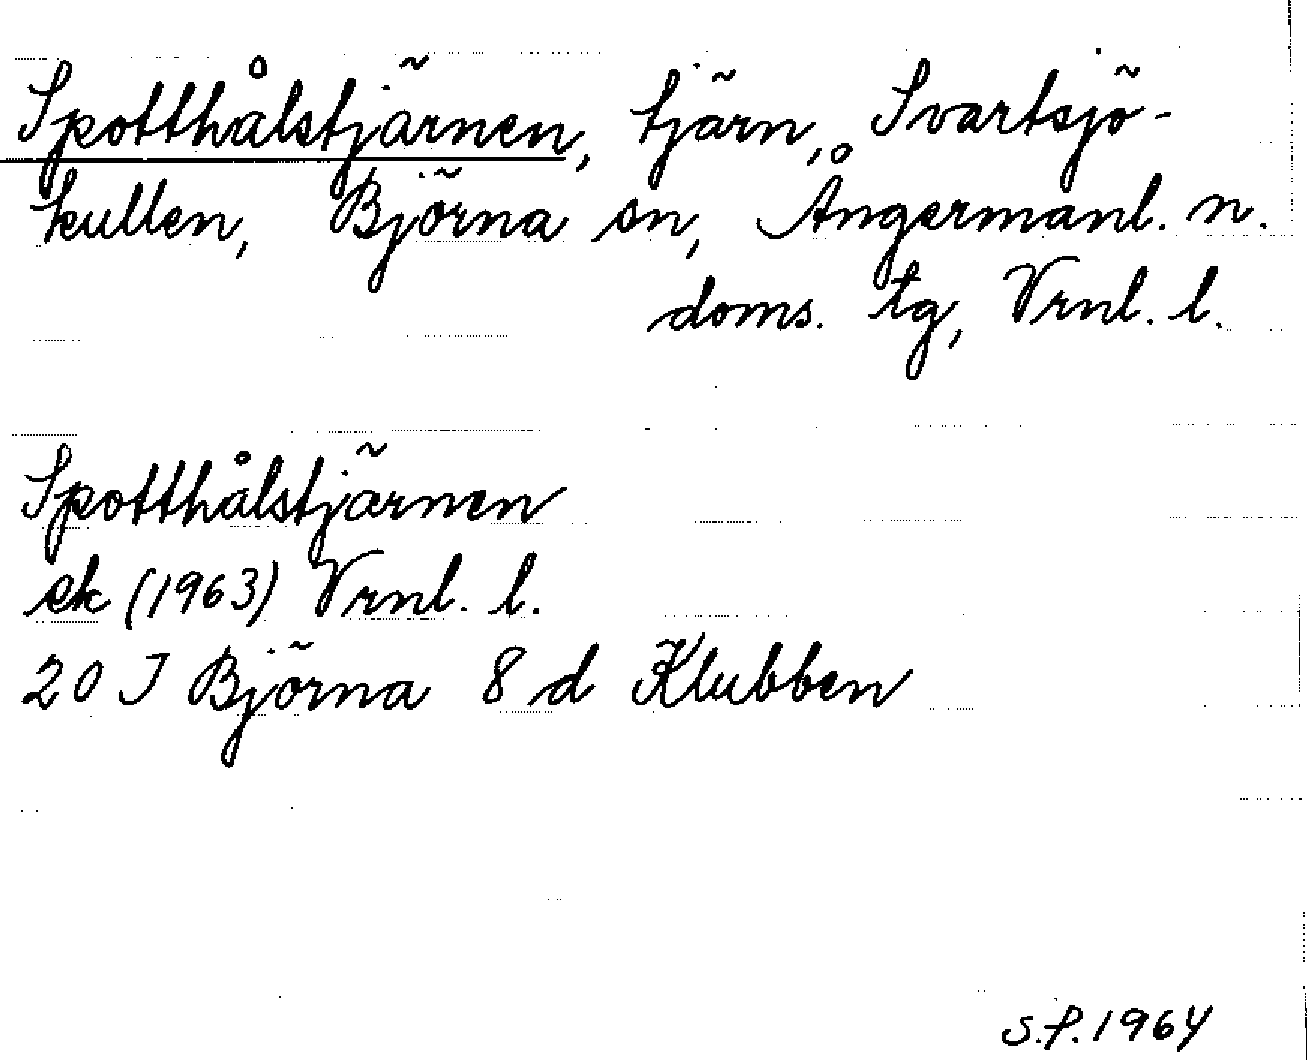 Spotthålstjärnen, tjärn, Svartsjö-
kullen, Björna sn, Ångermanl. n.
doms. tg, Vrnl. l.
Spotthålstjärnen
ek (1963) Vrnl. l.
20 J Björna 8 d Klubben
S.P. 1964